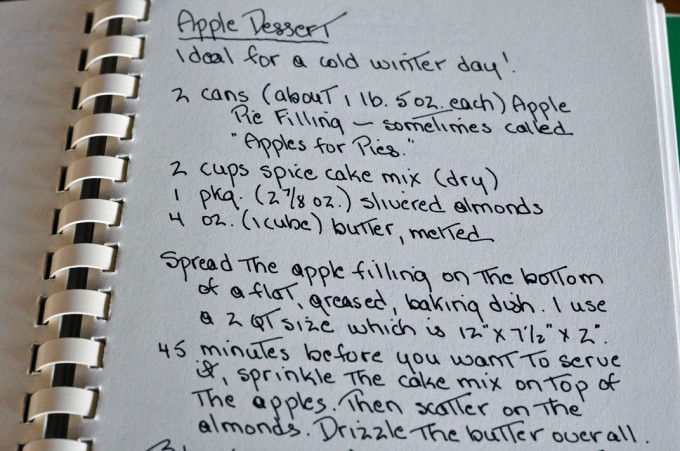 Apple Dessert
Ideal for a cold winter day!
2 cans (about 1 lb. 5 oz. each) Apple
Pie Filling – sometimes called
"Apples for Pies."
2 cups spice cake mix (dry)
1 pkg. (2 7/8 oz.) slivered almonds
4 oz. (1 cube) butter, melted
Spread the apple filling on the bottom
of a flat, greased, baking dish. I use
a 2 QT size which is 12" x 7 1/2" x 2".
45 minutes before you want to serve
it, sprinkle the cake mix on top of
the apples. Then scatter on the
almonds. Drizzle the butter over all.